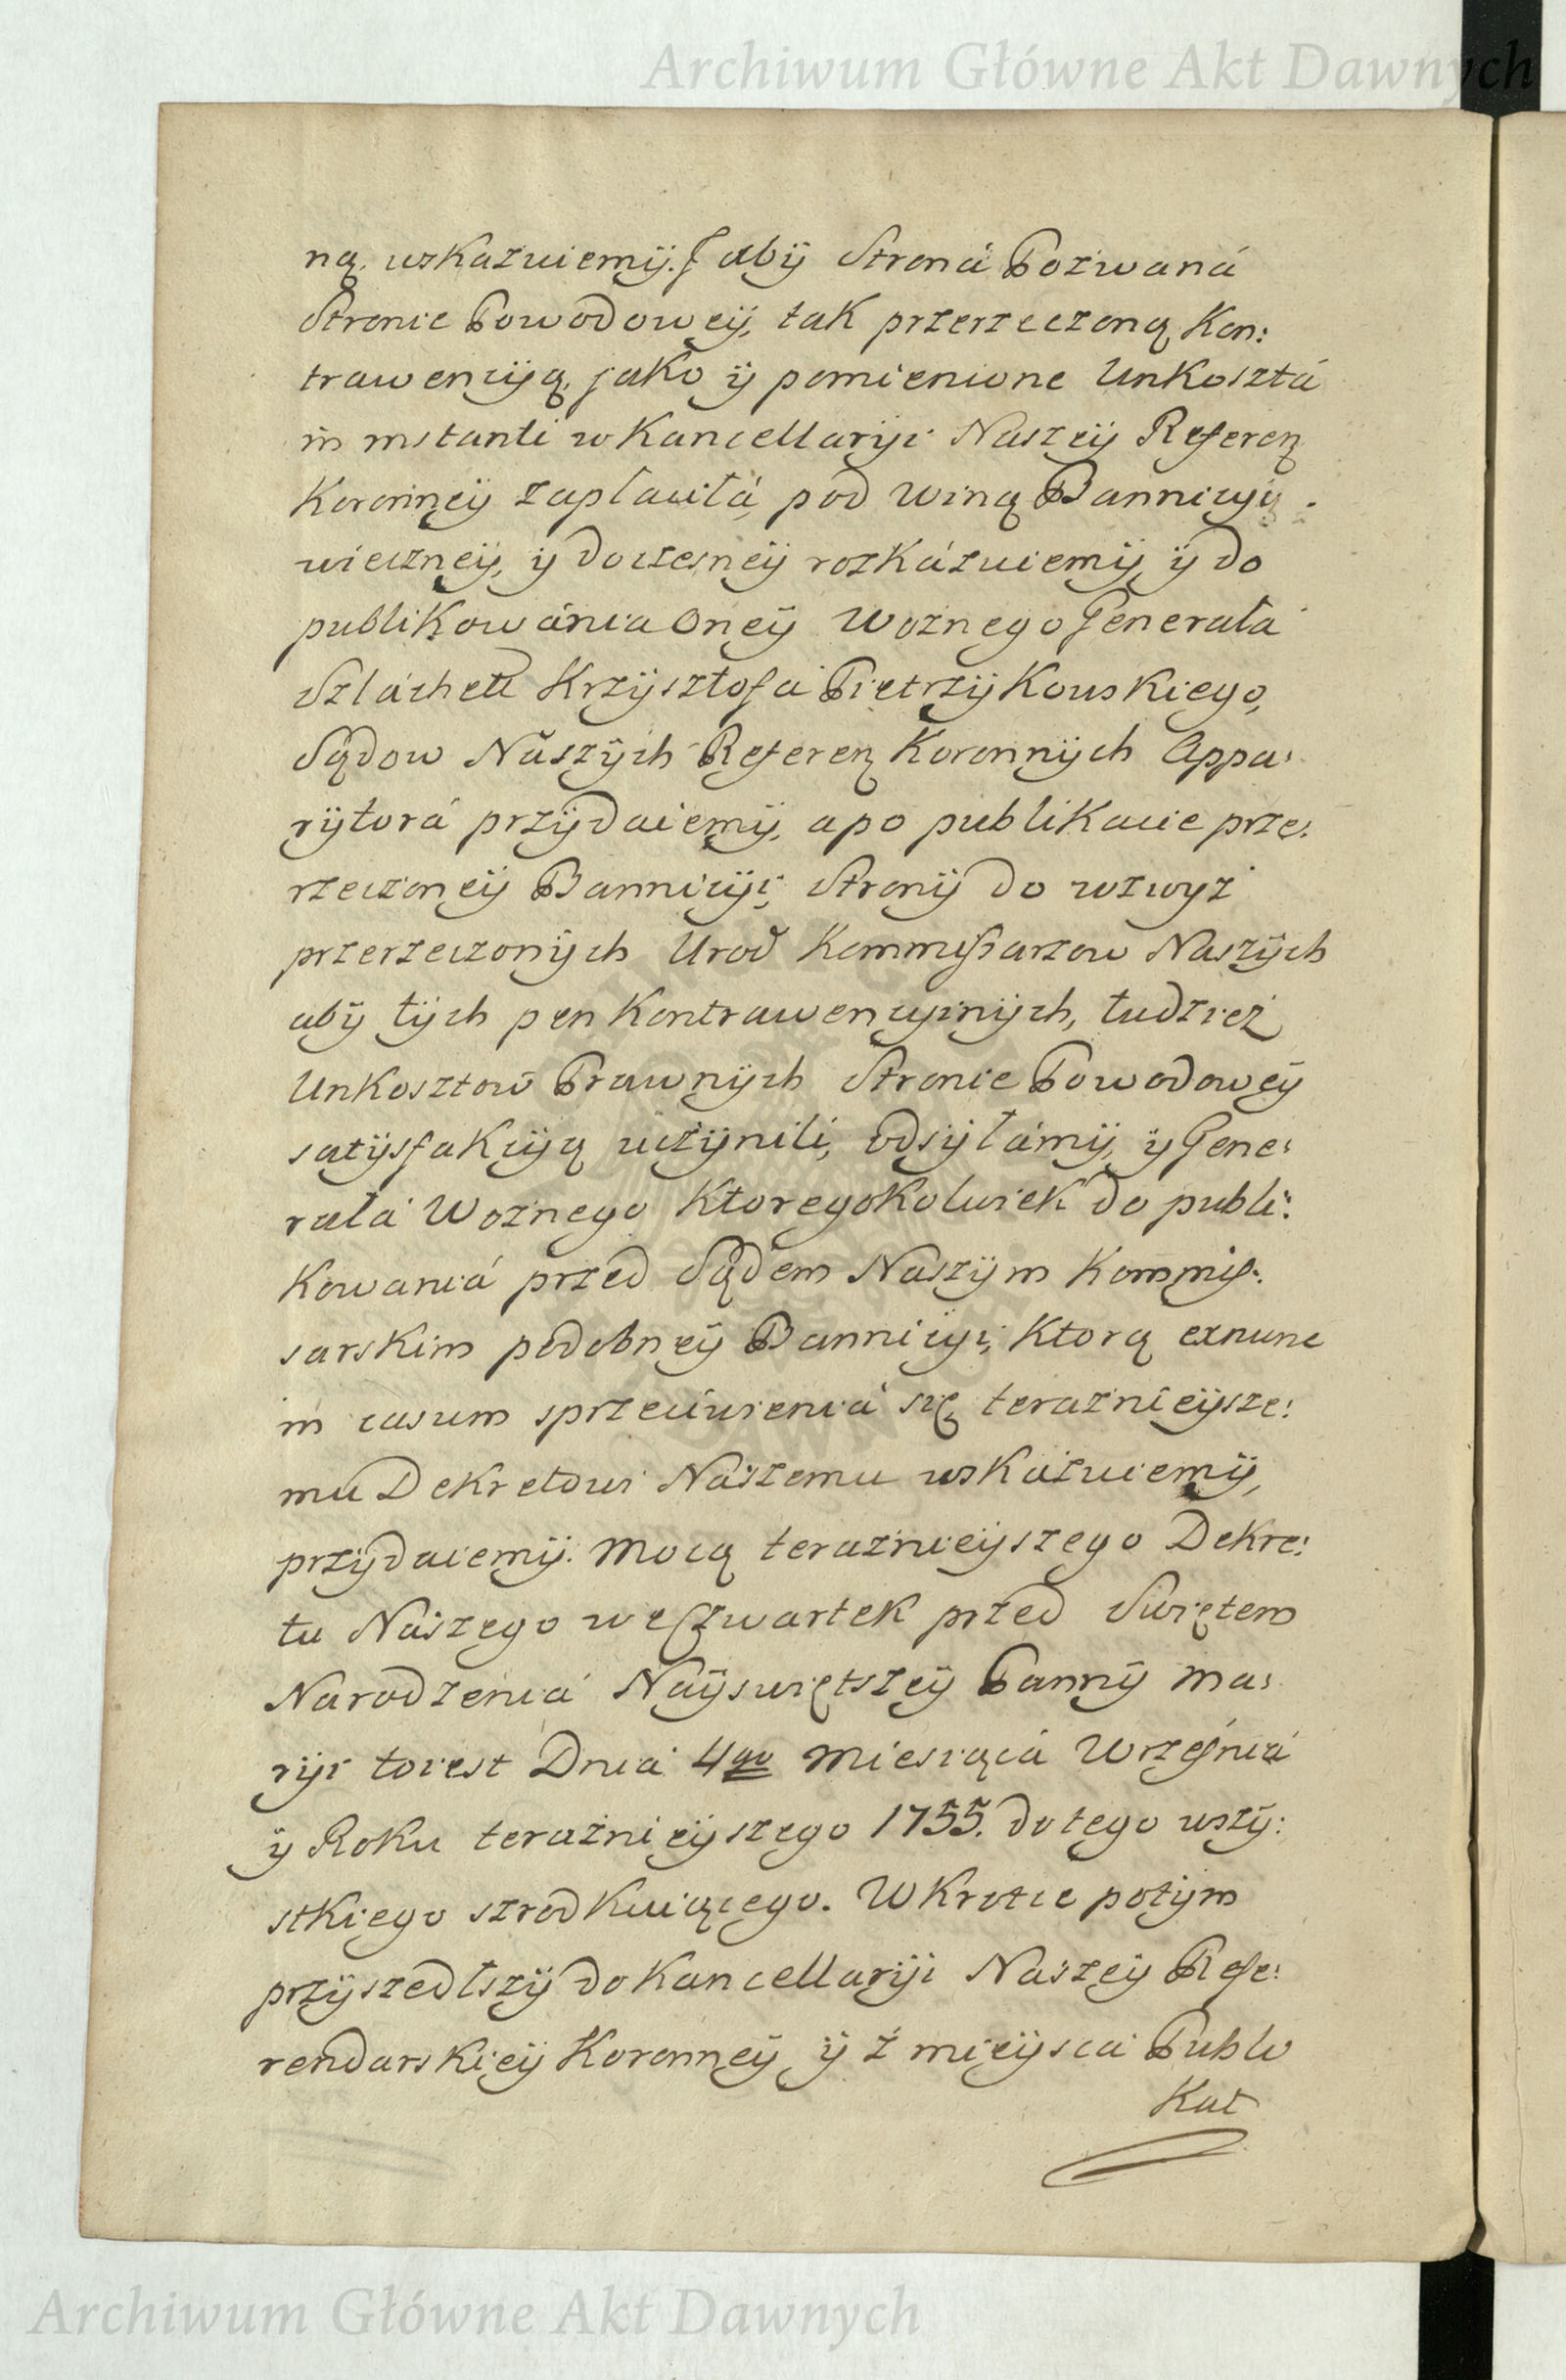 Archiwum Główne Akt Dawnych
ną, wskazuiemÿ. J abÿ Stroná Pozwaná
Stronie Powodoweÿ, tak przerzeczoną Kon:
trawencÿą, jako ÿ pomienione Unkosztá
in instanti w Kancellarÿi Naszeÿ Referen
Koronneÿ zapłaciłá, pod winą Bannicÿi
wieczneÿ, ÿ doczesneÿ rozkázuiemÿ, ÿ do
publikowánia oneÿ Woznego Generała
Szláchett Krzÿsztofa Pietrzÿkowskiego,
Sądow Nászÿch Referen Koronnÿch Appa:
rÿtorá przÿdaiemÿ, a po publikacie prze:
rzeczoneÿ Bannicÿi, Stronÿ do wzwyż
przerzeczonÿch Urod Kommissarzow Naszÿch
abÿ tÿch pen Kontrawencÿinÿch, tudzież
Unkosztow Prawnÿch Stronie Powodoweÿ
satÿsfakcÿą uczÿnili, odsÿłámÿ, ÿ Gene:
rała Woznego ktoregokolwiek do publi:
kowaniá przed Sądem Naszÿm Kommis:
sarskim podobneÿ Bannicÿi, ktorą exnunc
in casum sprzeciwieniá się teraznieÿsze:
mu Dekretowi Nászemu wskázuiemÿ,
przÿdaiemÿ. Mocą teraznieÿszego Dekre:
tu Nászego we Czwartek przed Swiętem
Narodzeniá Naÿswiętszeÿ Pannÿ Ma:
rÿi to iest Dniá 4go Miesiącá Wrzesniá
ÿ Roku teraźnieÿszego 1755. do tego wszÿ:
stkiego szrodkuiącego. W krotce potÿm
przÿszedłszÿ do Kancellarÿi Naszeÿ Refe:
rendarskieÿ Koronneÿ ÿ z mieÿsca Publi
Kat
Archiwum Główne Akt Dawnych